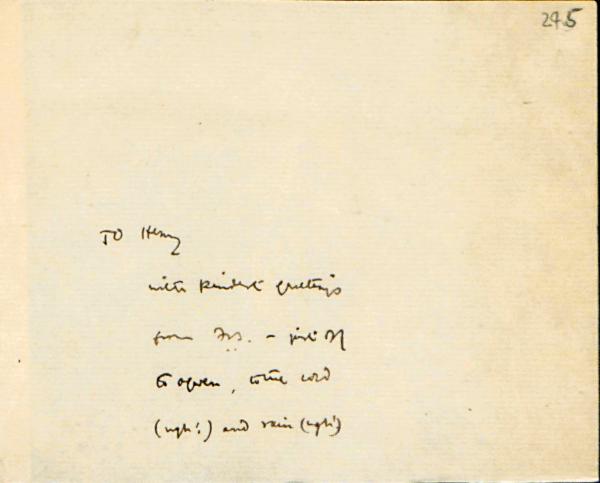 245
TO Henry
with kindest greetings
from – just off
to, to the cold
(ugh!) and rain (ugh!)